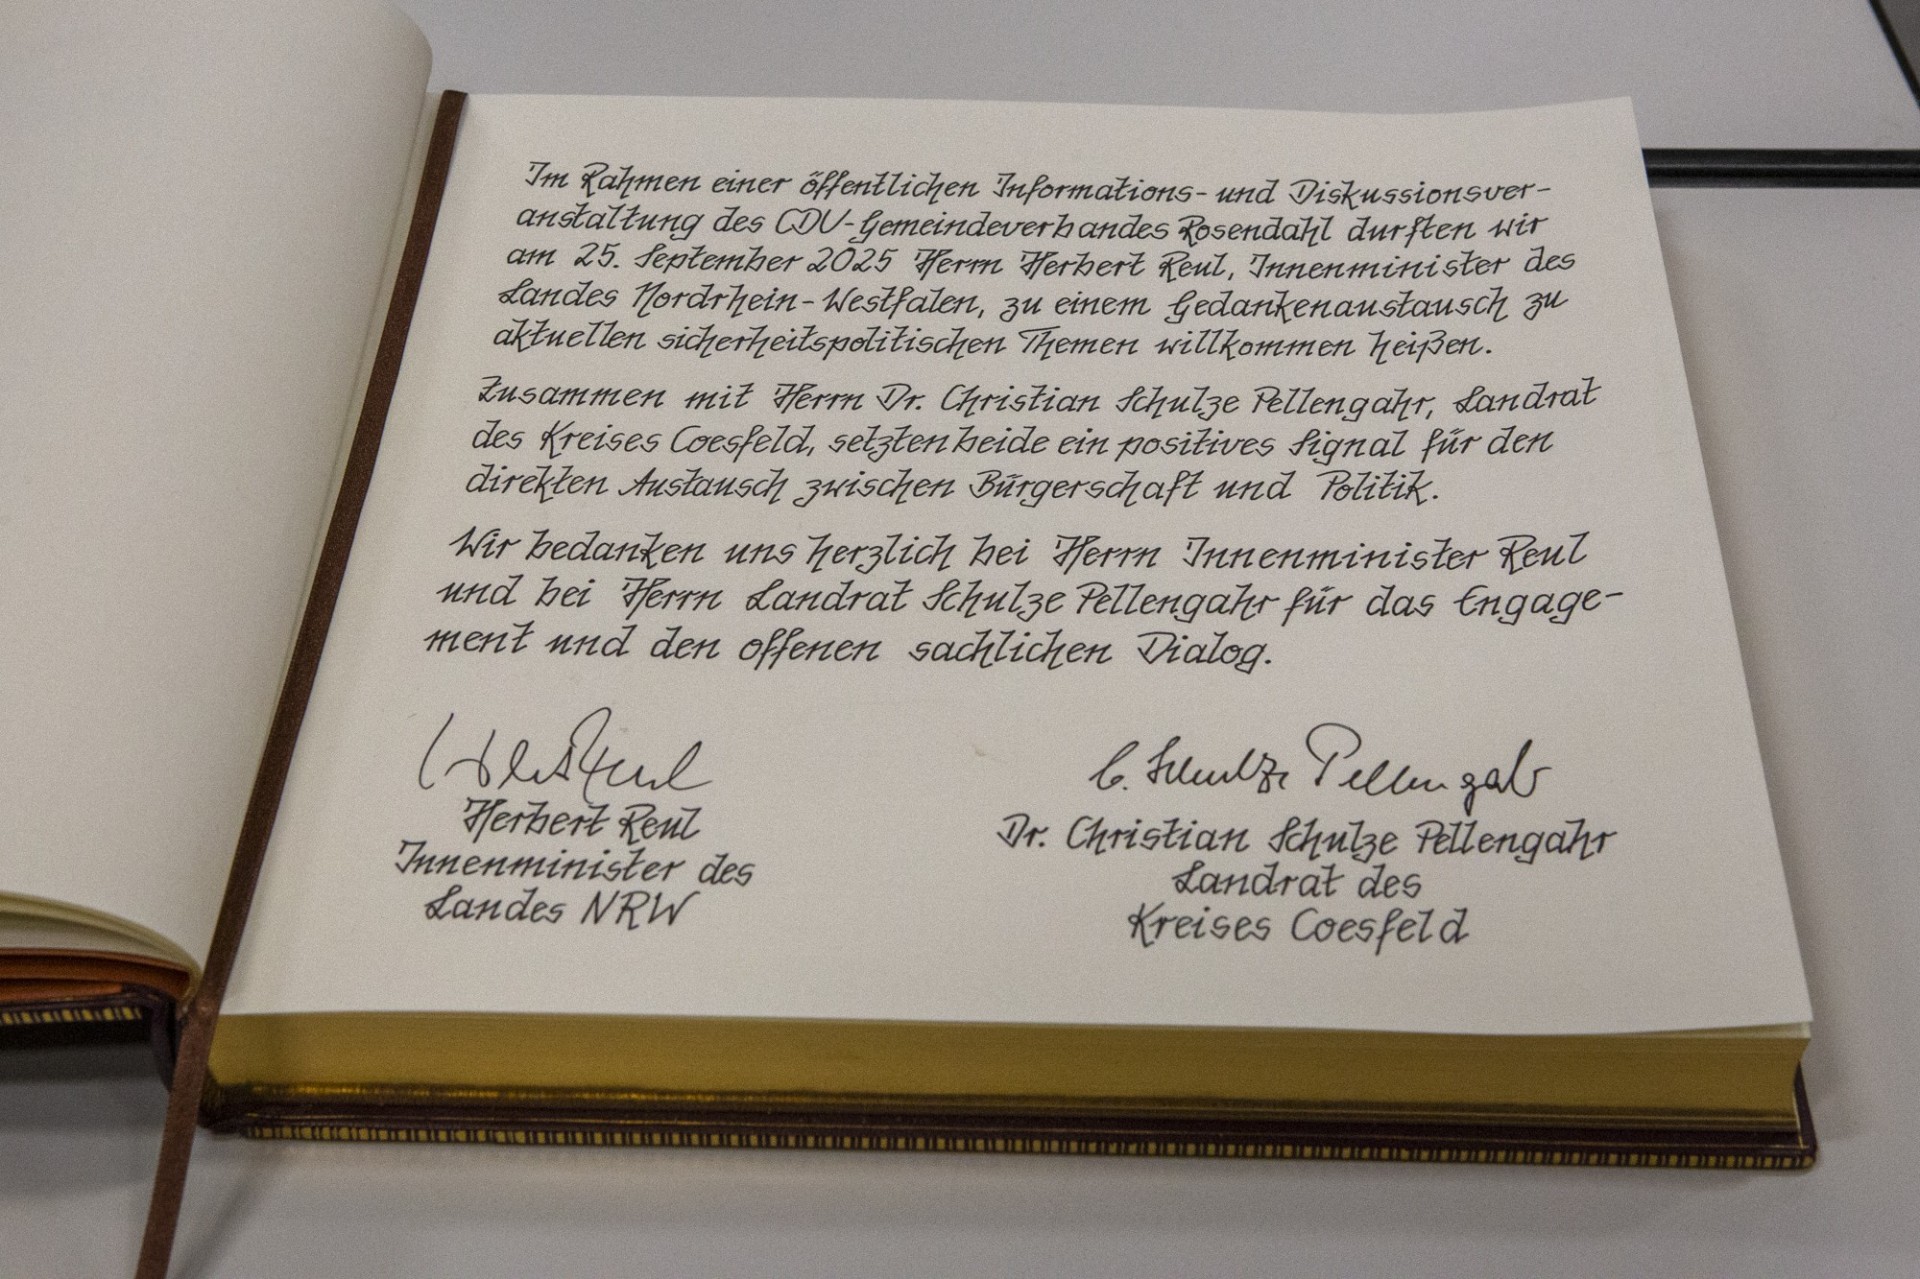 Im Rahmen einer öffentlichen Informations- und Diskussionsver-
anstaltung des CDU-Gemeindeverbandes Rosendahl durften wir
am 25. September 2025 Herrn Herbert Reul, Innenminister des
Landes Nordrhein-Westfalen, zu einem Gedankenaustausch zu
aktuellen sicherheitspolitischen Themen willkommen heißen.
Zusammen mit Herrn Dr. Christian Schulze Pellengahr, Landrat
des Kreises Coesfeld, setzten beide ein positives Signal für den
direkten Austausch zwischen Bürgerschaft und Politik.
Wir bedanken uns herzlich bei Herrn Innenminister Reul
und bei Herrn Landrat Schulze Pellengahr für das Engage-
ment und den offenen sachlichen Dialog.
Herbert Reul
C. Schulze Pellengahr
Herbert Reul
Innenminister des
Landes NRW
Dr. Christian Schulze Pellengahr
Landrat des
Kreises Coesfeld